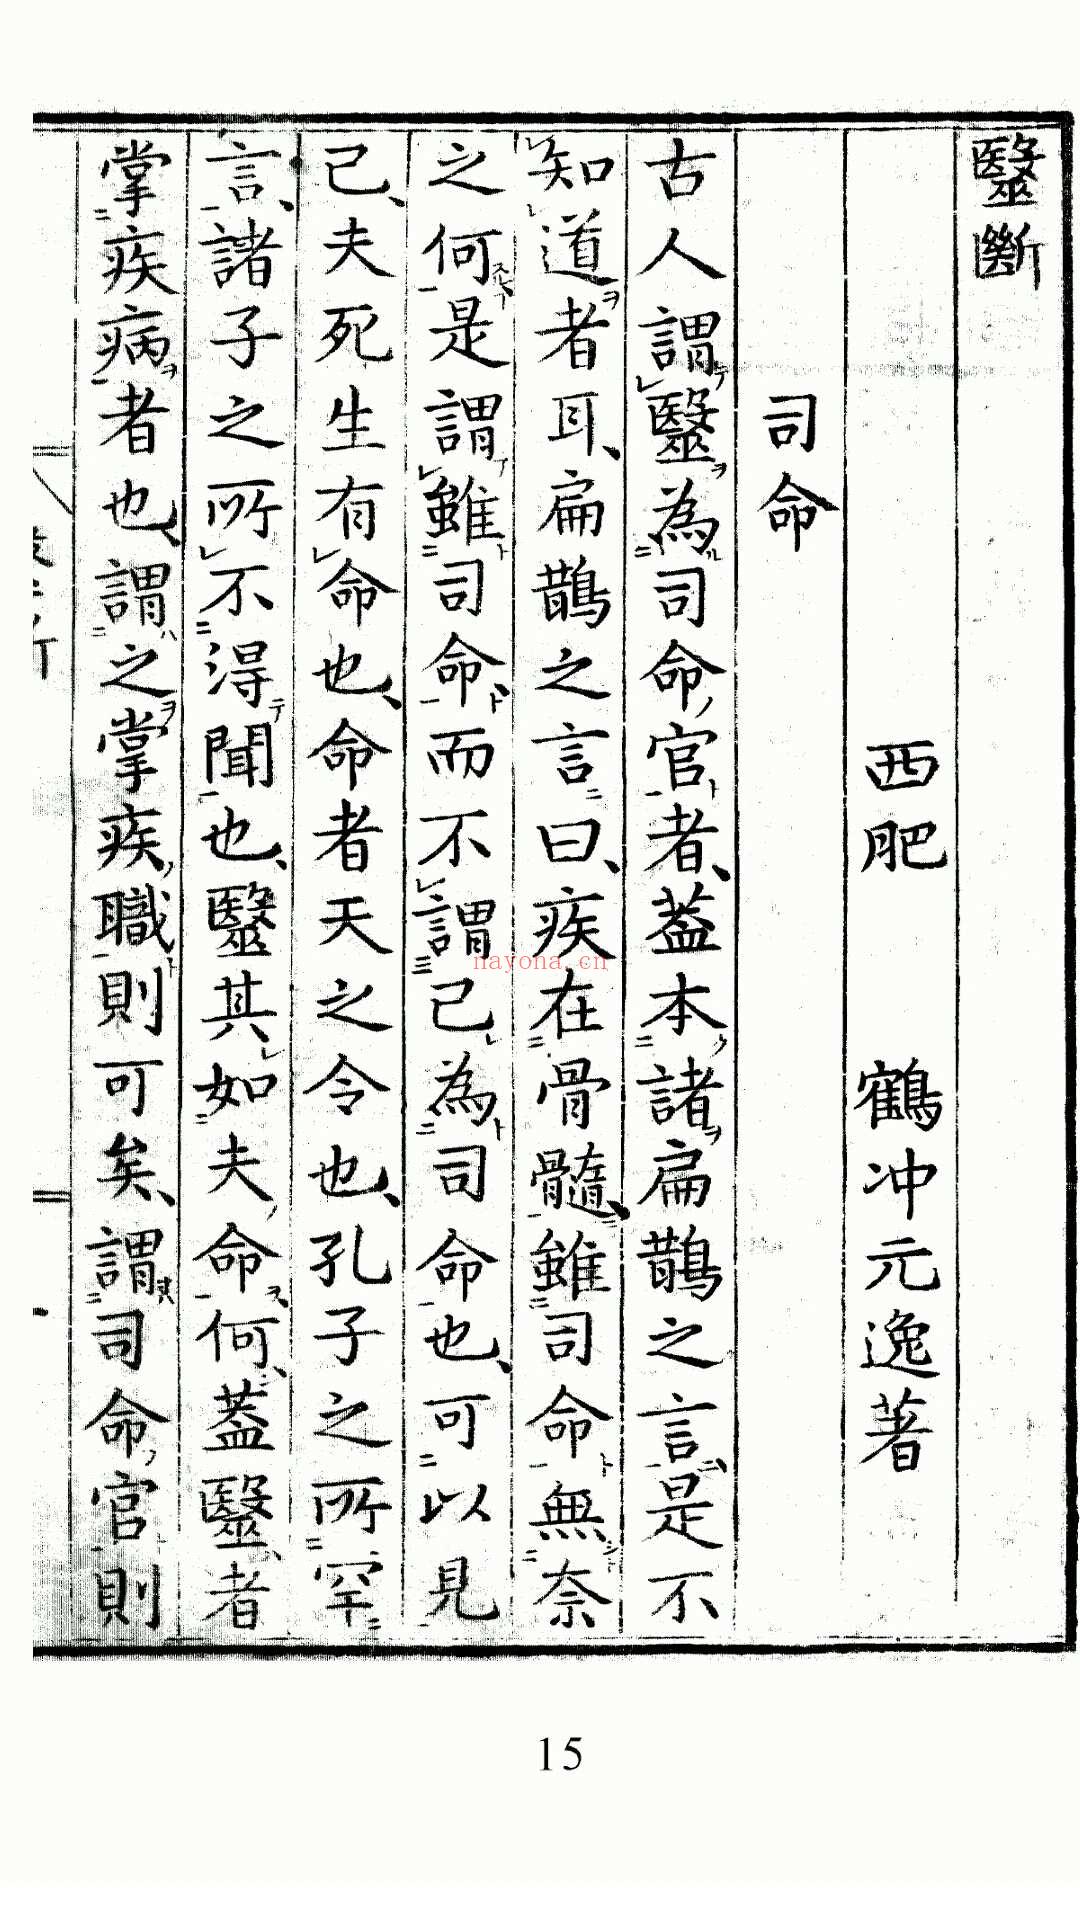 毉斷
西肥 鶴冲元逸著
司命
古人謂毉為司命官者、葢本諸扁鵲之言、是不
知道者耳、扁鵲之言曰、疾在骨髓、雖司命無奈
之何是謂雖司命而不謂己為司命也、可以見
已、夫死生有命也、命者天之令也、孔子之所罕
言、諸子之所不得聞也、毉其如夫命何、葢毉者
掌疾病者也、謂之掌疾職則可矣、謂司命官則
nayona.cn
15